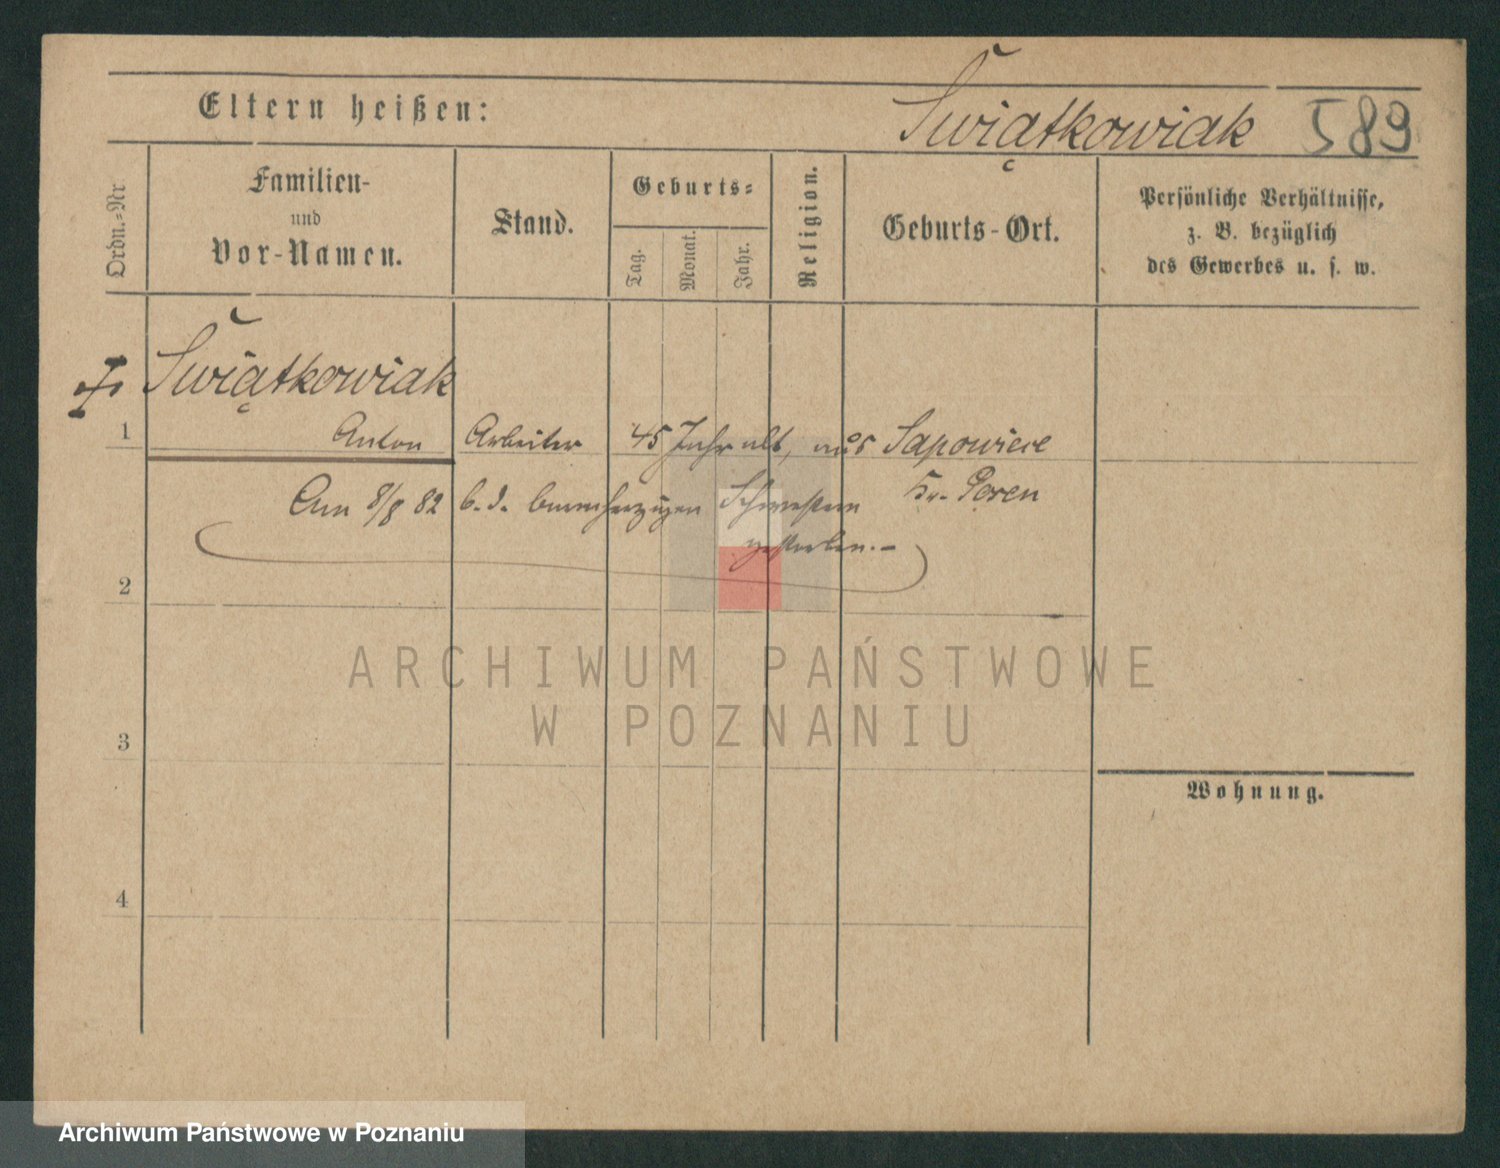 Eltern heißen:
Świątkowiak 589
Ordn.=Nr.
Familien-
und
Vor-Namen.
Stand.
Geburts=
Tag.
Monat.
Jahr.
Religion.
Geburts-Ort.
Persönliche Verhältnisse,
z. B. bezüglich
des Gewerbes u. s. w.
Świątkowiak
1 Anton Arbeiter 45 Jahr alt, aus Sapowice
Am 8/8 82 b. d. barmherzigen Schwestern Kr. Posen
gestorben.-
2
ARCHIWUM PAŃSTWOWE
W POZNANIU
3
Wohnung.
4
Archiwum Państwowe w Poznaniu